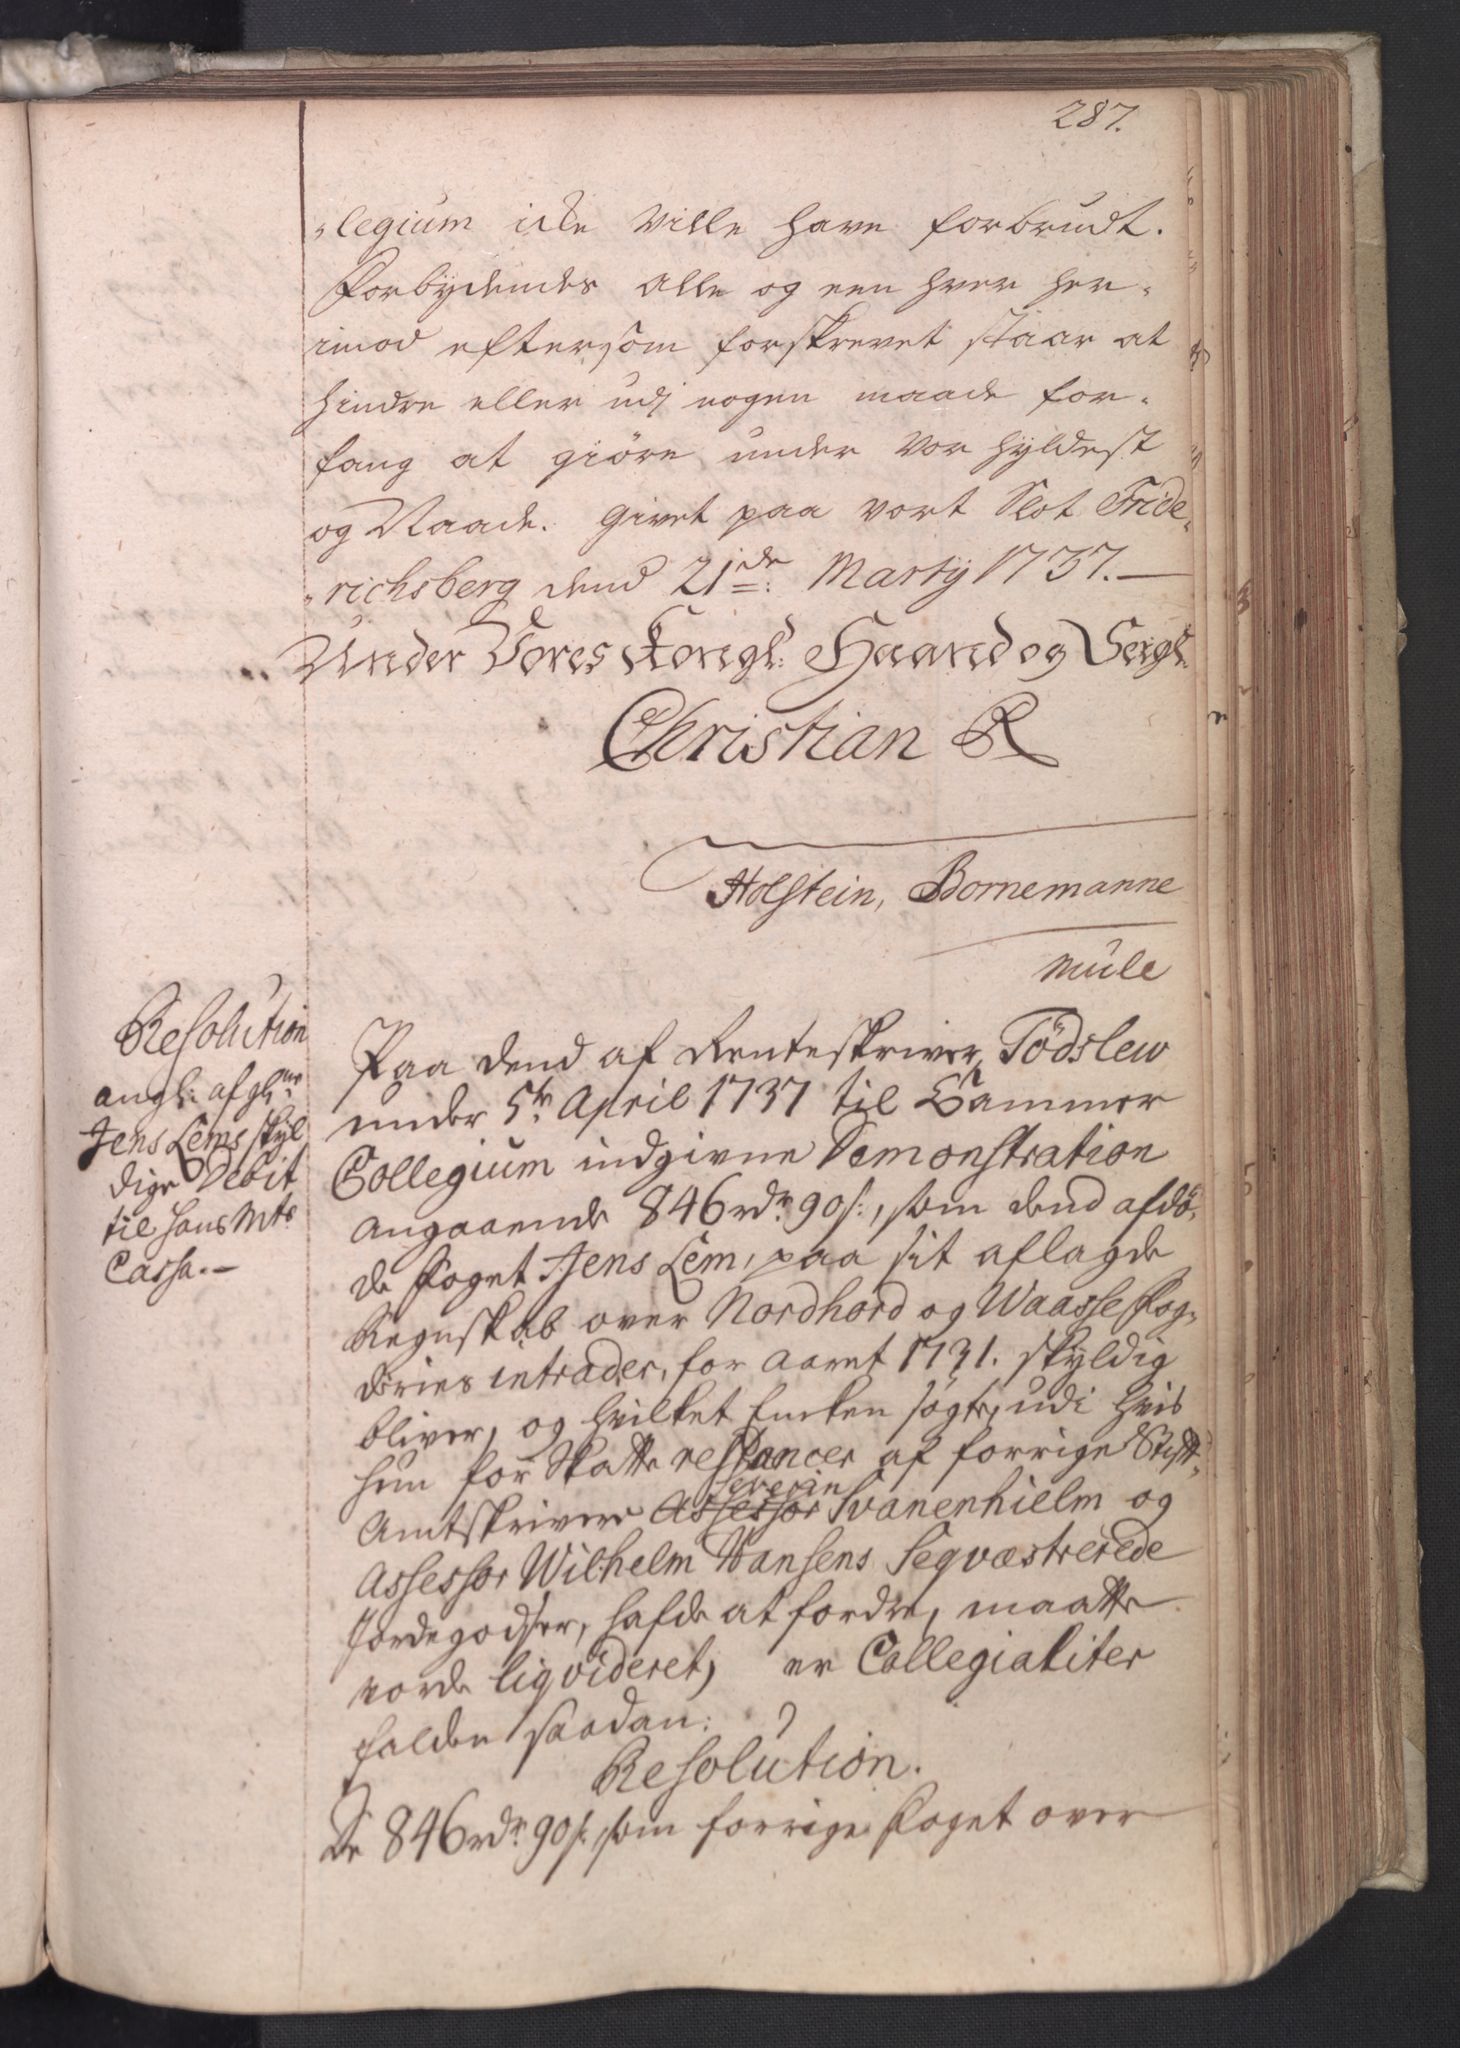 287.
legium icke Ville have forbrudt.
Forbydendes alle og een hver her-
imod eftersom forskrevet staar at
hindre eller udj nogen maade for-
fang at giöre under Vor hyldest
og Naade. Givet paa vort Slot Fride-
richsberg dend 21de: Martij 1737.
Under Vores Kongl: Haand og Seigl.
Christian R
Holstein, Bornemanne
Mule
Resolution
angl: afg:ne
Jens Lems skyl
dige Debit
til hans Mts
Cassa.
Paa dend af Renteskriver Tödslew
under 5te April 1737 til Cammer
Collegium indgivne Demonstration
angaaende 846 rdr. 90 s:, som dend afdö-
de Foget Jens Lem, paa sit aflagde
Regnskab over Nordhord og Waasse Fog-
deries intrader, for Aaret 1731. skyldig
bliver, og hvilket Encken søgte, udi hvis
hun for Skatte restancer af forrige Stift-
Amtskriver Assessor Severin Svanenhielm og
Assessor Wilhelm Hansens Seqvæstrerede
Jordegodser, hafde at fordre, maatte
vorde liqvideret, er Collegialiter
falden saadan:
Resolution.
De 846 rdr. 90 s: som forrige Foget over